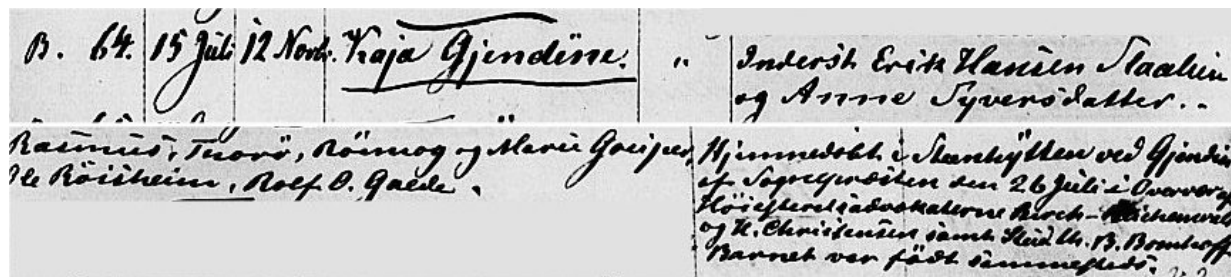 B. 64. 15 Juli 12 Novb. Kaja Gjendine. " Inderst Erik Hansen Slaalien
og Anne Syversdatter.
Rasmus, Thorö, Rönnog og Marie Greiper, Hjemmedöbt i Steenhytten ved Gjendin
Ole Röisheim, Rolf O. Galde. af Sognepræsten den 26 Juli i Overvær af
Höiesteretsadvokaterne Birch-Reichenwald
og H. Christensen samt Stud. th. B. Bomhoff
Barnet var födt sammesteds